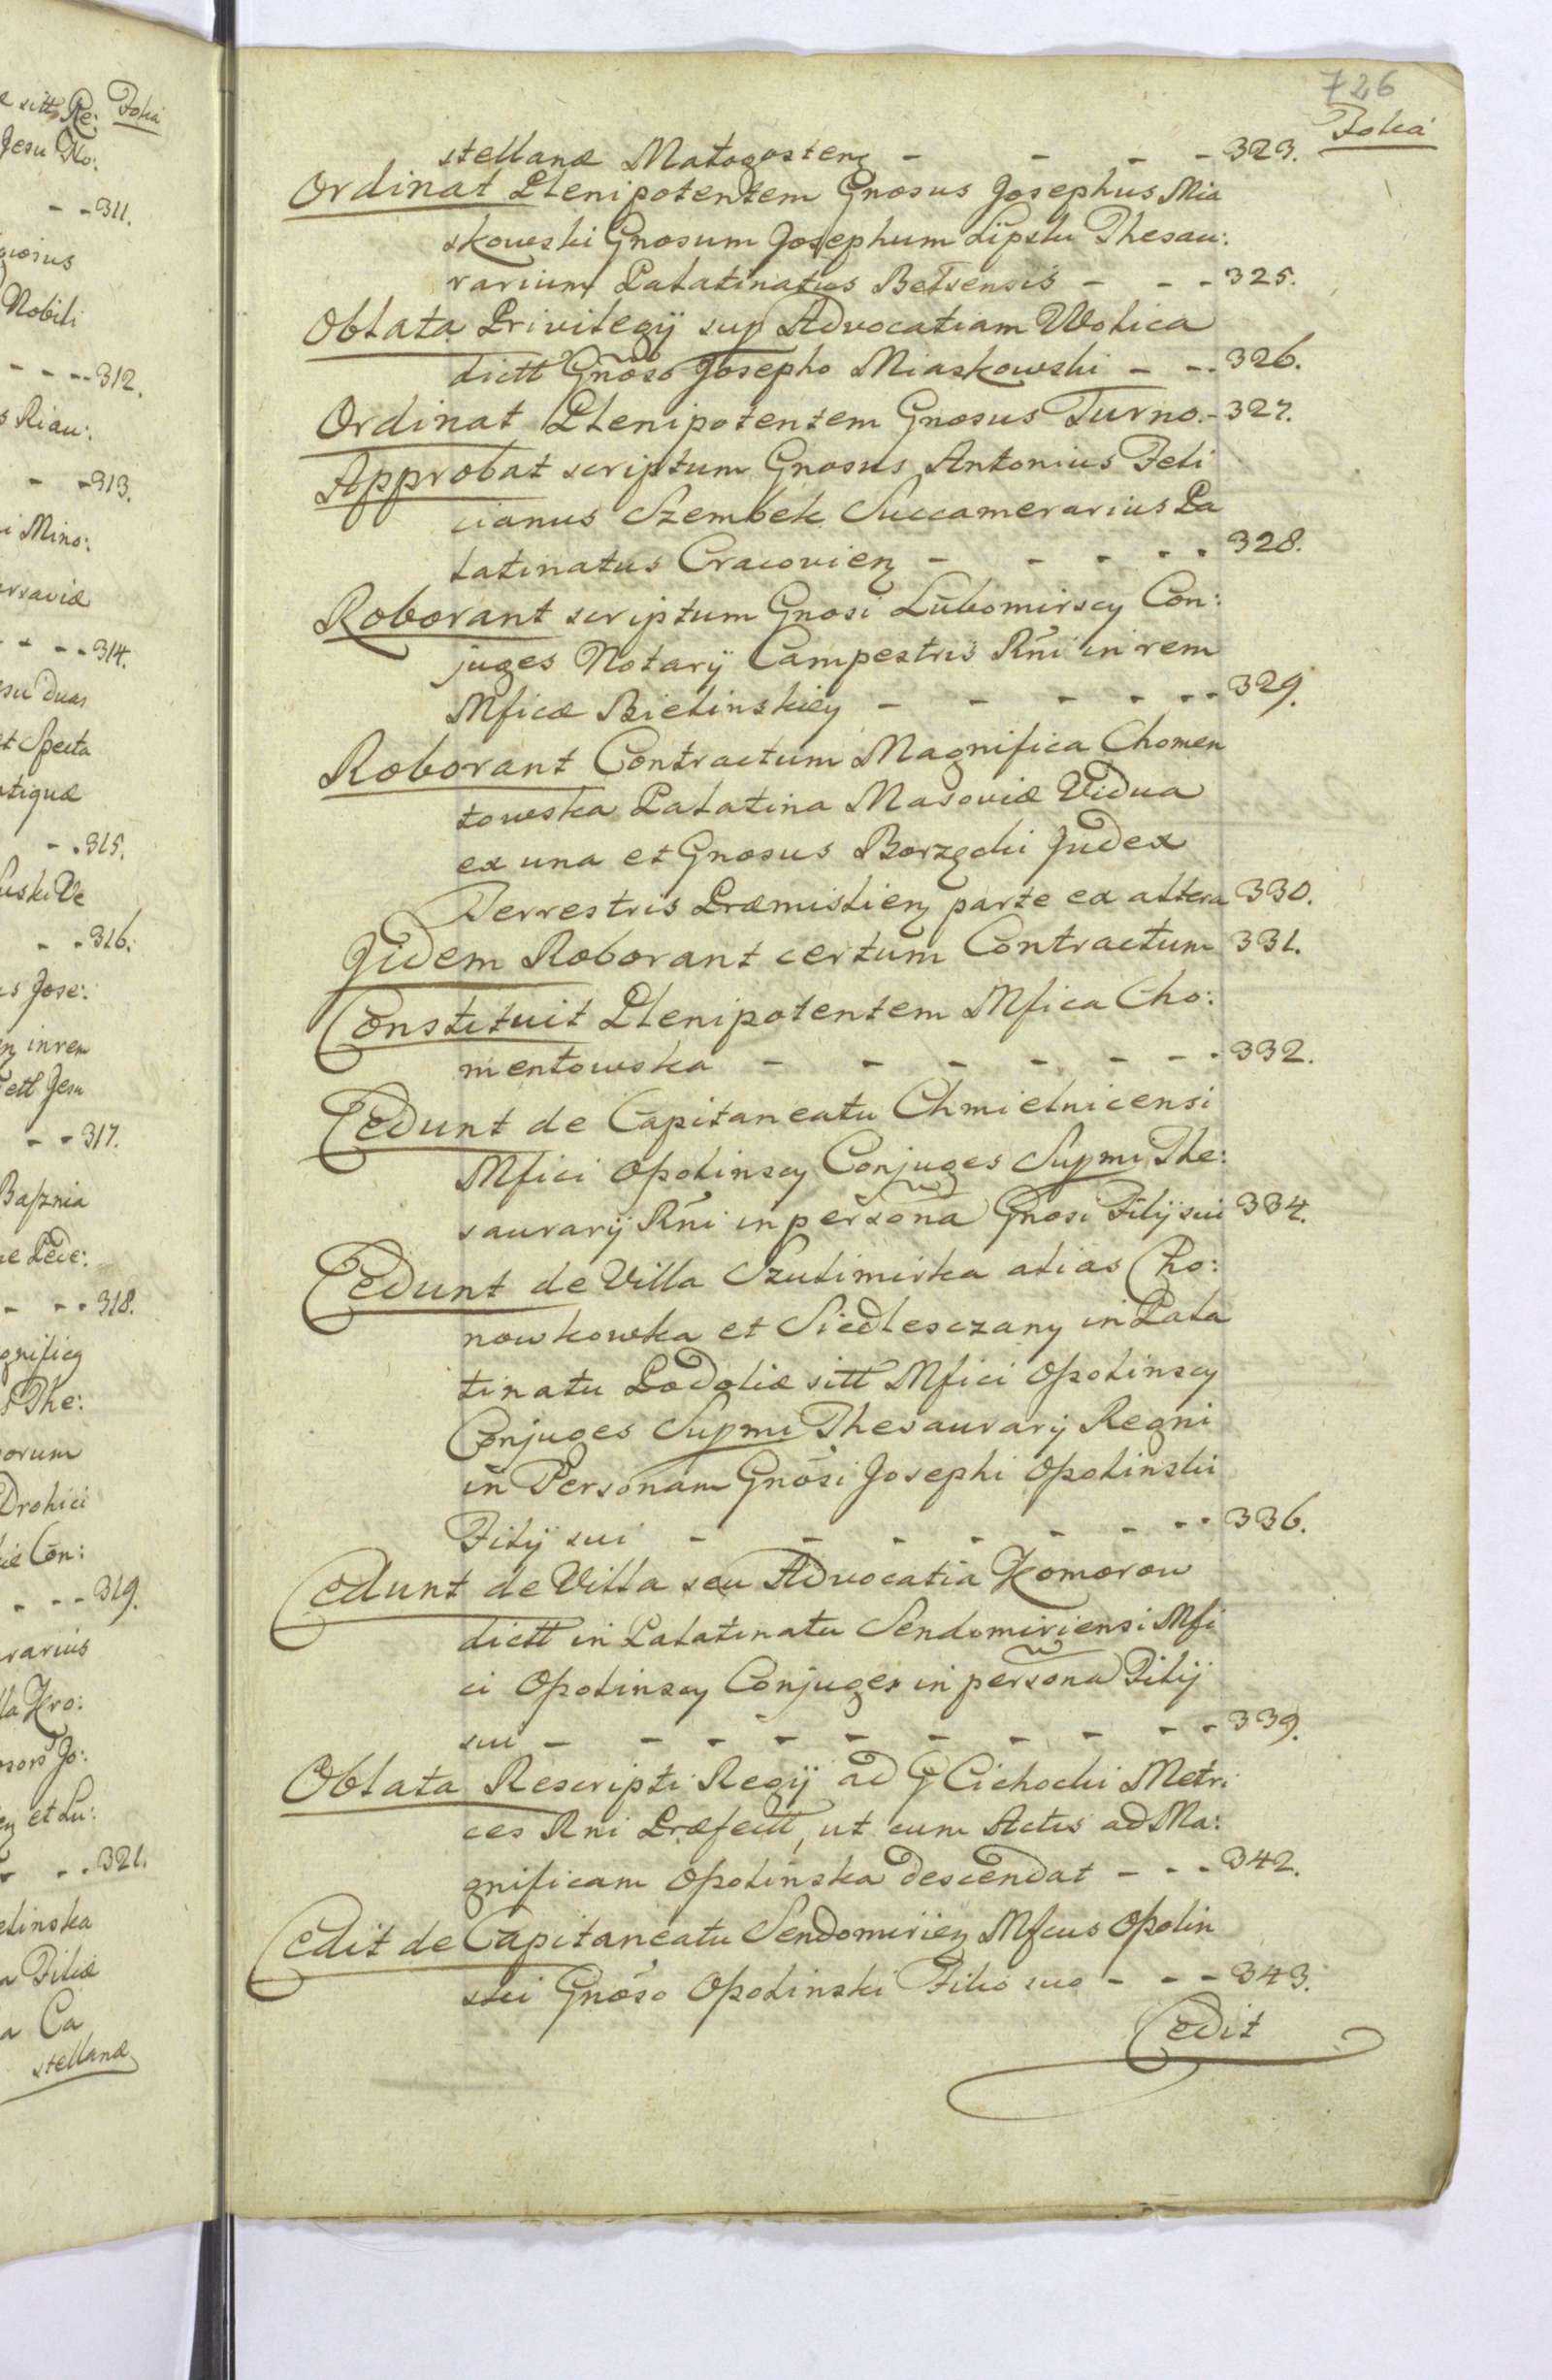 e sitt Re: Folia
Jesu No:
- - 311.
Nobili
- - - - 312.
- - 313.
i Mino:
- - - - 314.
su duas
et Specta
- - 315.
- - 316.
s Jose:
in rem
ett Jesu
- - 317.
- - - 318.
The:
orum
Drohici
Con:
- - - 319.
la Kro:
et Lu:
- - 321.
elinska
a Filiæ
a Ca
stellanæ
726
Folia
stellanæ Małogosten - - - - 323.
Ordinat Plenipotentem Gnosus Josephus Mia
skowski Gnosum Josephum Lipski Thesau:
rarium Palatinatus Bełsensis - - - 325.
Oblata Privilegij sup Advocatiam Wolica
dictt Gnoso Josepho Miaskowski - - - 326.
Ordinat Plenipotentem Gnosus Turno. - 327.
Approbat scriptum Gnosus Antonius Feli
cianus Szembek Succamerarius Pa
latinatus Cracovien - - - - - 328.
Roborant scriptum Gnosi Lubomirscy Con:
juges Notarij Campestris Rni in rem
Mficæ Bielinskiey - - - - - - 329.
Roborant Contractum Magnifica Chomen
towska Palatina Masoviæ Vidua
ex una et Gnosus Borzęcki Judex
Terrestris Præmislien parte ex altera 330.
Jidem Roborant certum Contractum 331.
Constituit Plenipotentem Mfica Cho:
mentowska - - - - - - - 332.
Cedunt de Capitaneatu Chmielnicensi
Mfici Opolinscy Conjuges Supmi The:
saurarij Rni in persona Gnosi Filij sui 334.
Cedunt de Villa Szulimirka alias Cho:
nowkowka et Siedlesczany in Pala
tinatu Podoliæ sitt Mfici Opolinscy
Conjuges Supmi Thesaurarij Regni
in Personam Gnosi Josephi Opolinski
Filij sui - - - - - - - - 336.
Cedunt de Villa seu Advocatia Komorow
dictt in Palatinatu Sendomiriensi Mfi
ci Opolinscy Conjuges in persona Filij
sui - - - - - - - - - - 339.
Oblata Rescripti Regij ad G Cichocki Metri
ces Rni Præfectt, ut cum Actis ad Ma:
gnificam Opolinska descendat - - - 342.
Cedit de Capitaneatu Sendomirien Mfcus Opolin
ski Gnoso Opolinski Filio suo - - - 343.
Cedit